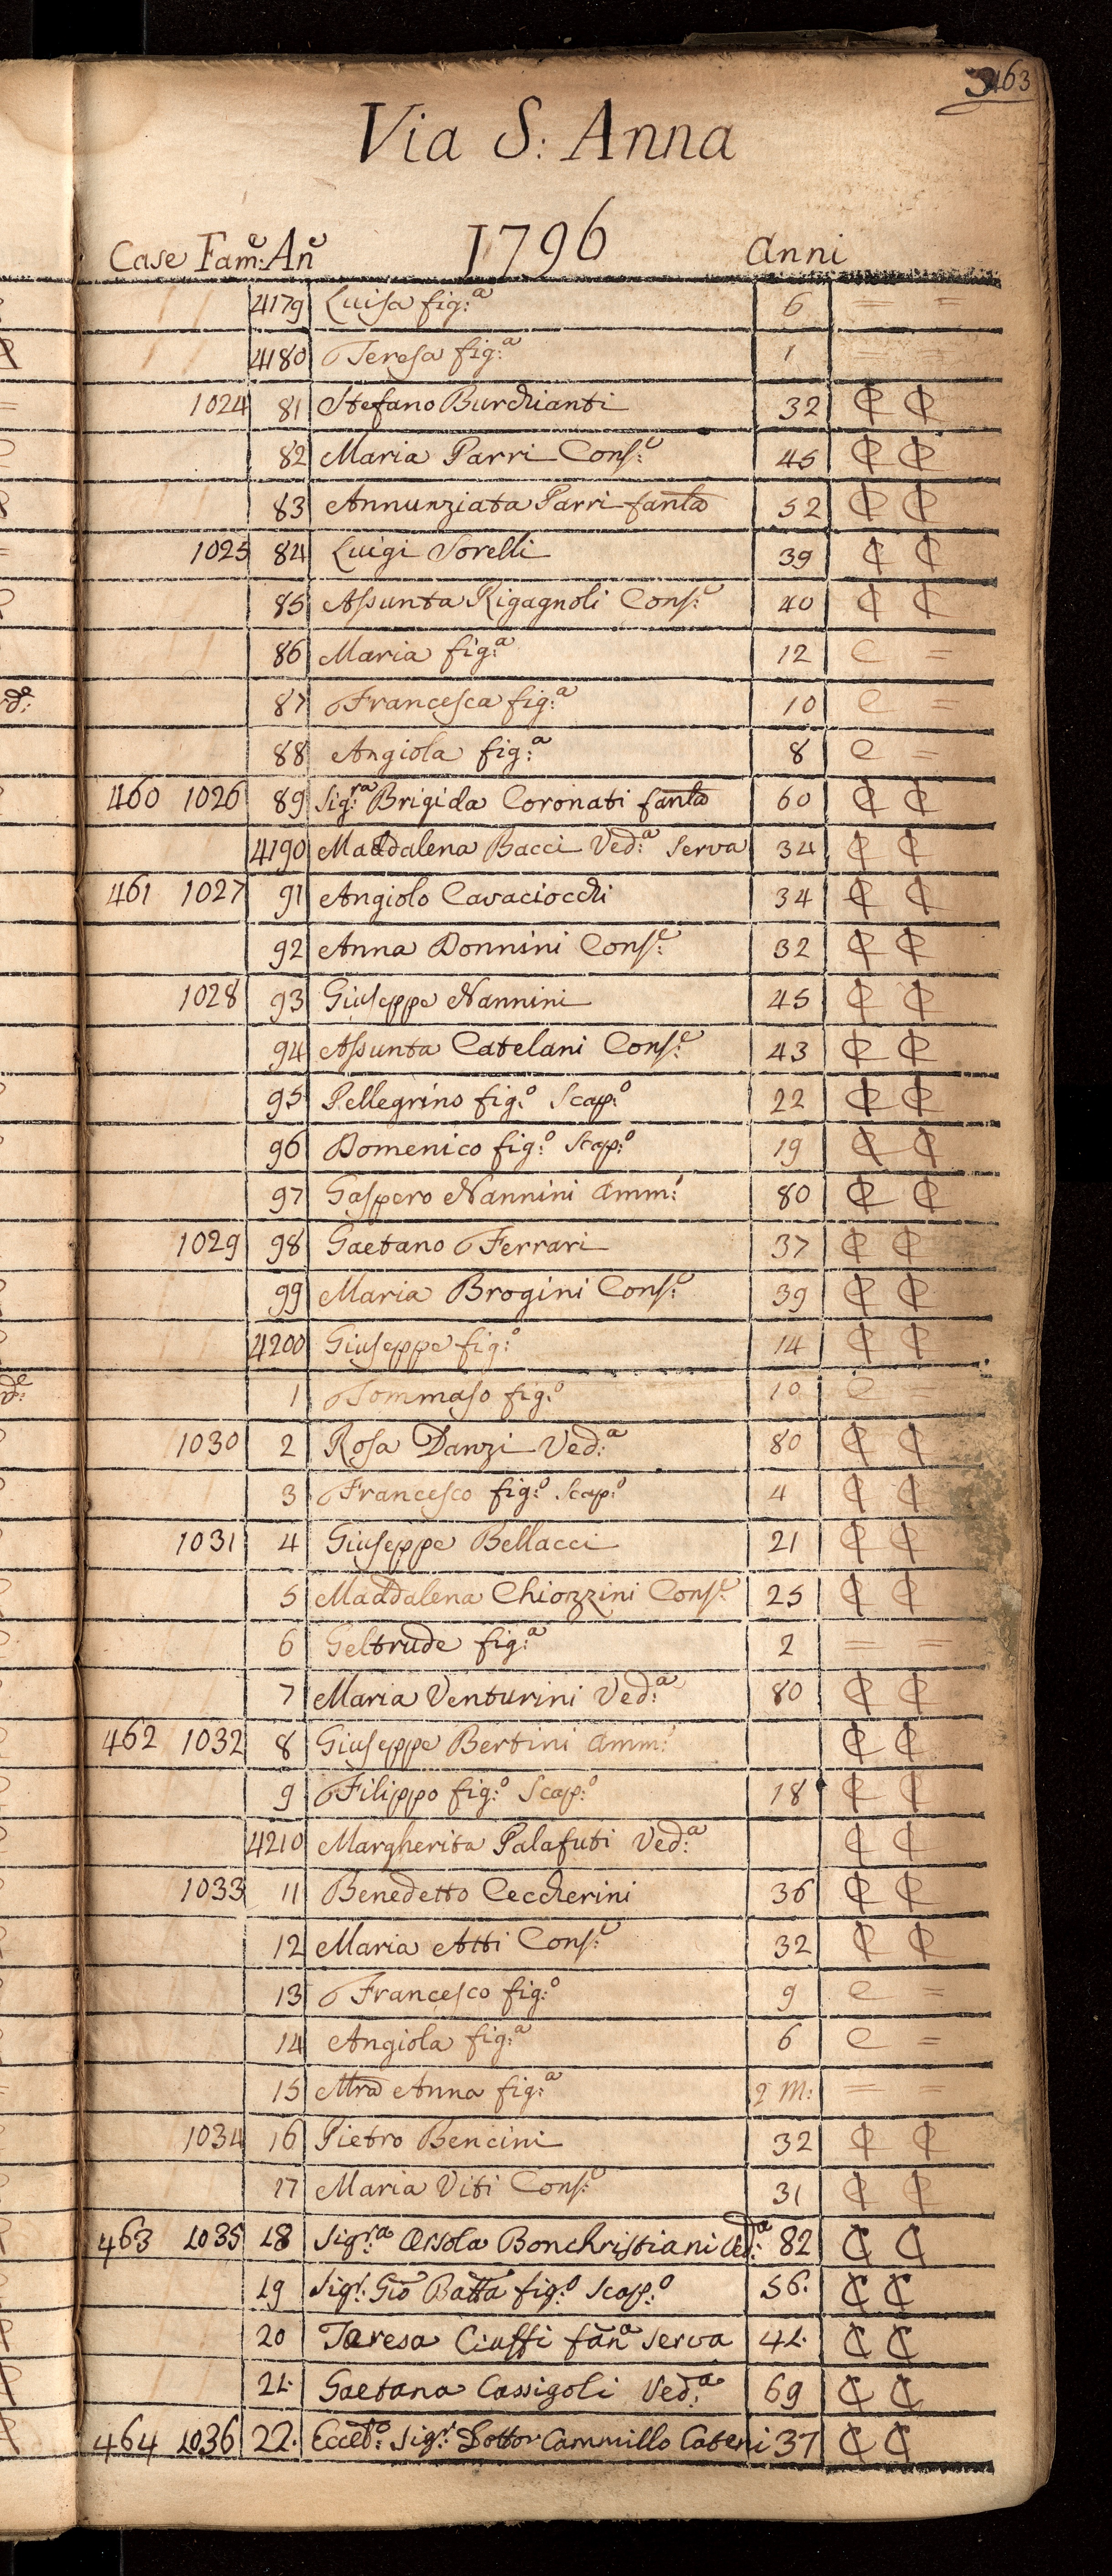 463
Via S: Anna
1796
Case Fam:e An:e anni
4179 Luisa fig:a 6 = =
4180 Teresa fig:a 1 = =
1024 81 Stefano Burchianti 32 C C
82 Maria Parri Cons:e 45 C C
83 Annunziata Parri fanla 52 C C
1025 84 Luigi Sorelli 39 C C
85 Assunta Rigagnoli Cons:e 40 C C
86 Maria fig:a 12 C =
87 Francesca fig:a 10 C =
88 Angiola fig:a 8 C =
460 1026 89 Sig:ra Brigida Coronati fanla 60 C C
4190 Maddalena Bacci Ved:a Serva 34 C C
461 1027 91 Angiolo Cavaciocchi 34 C C
92 Anna Donnini Cons:e 32 C C
1028 93 Giuseppe Nannini 45 C C
94 Assunta Catelani Cons:e 43 C C
95 Pellegrino fig:o Scap:o 22 C C
96 Domenico fig:o Scap:o 19 C C
97 Gaspero Nannini Amm:o 80 C C
1029 98 Gaetano Ferrari 37 C C
99 Maria Brogini Cons:e 39 C C
4200 Giuseppe fig:o 14 C C
1 Tommaso fig:o 10 C =
1030 2 Rosa Danzi Ved:a 80 C C
3 Francesco fig:o Scap:o 4 C C
1031 4 Giuseppe Bellacci 21 C C
5 Maddalena Chiozzini Cons:e 25 C C
6 Geltrude fig:a 2 = =
7 Maria Venturini Ved:a 80 C C
462 1032 8 Giuseppe Bertini Amm:o C C
9 Filippo fig:o Scap:o 18 C C
4210 Margherita Palafuti Ved:a C C
1033 11 Benedetto Ceccherini 36 C C
12 Maria Atti Cons:e 32 C C
13 Francesco fig:o 9 C =
14 Angiola fig:a 6 C =
15 Mra Anna fig:a 2 M: = =
1034 16 Pietro Bencini 32 C C
17 Maria Viti Cons:e 31 C C
463 1035 18 Sig:ra Orsola Bonchristiani Ved:a 82 C C
19 Sigr. Gio Batta fig:o Scap:o 56. C C
20 Teresa Ciuffi fan:a Serva 41. C C
21. Gaetana Cassigoli Ved:a 69 C C
464 1036 22. Eccel:o Sig:r Dottor Cammillo Cateni 37 C C